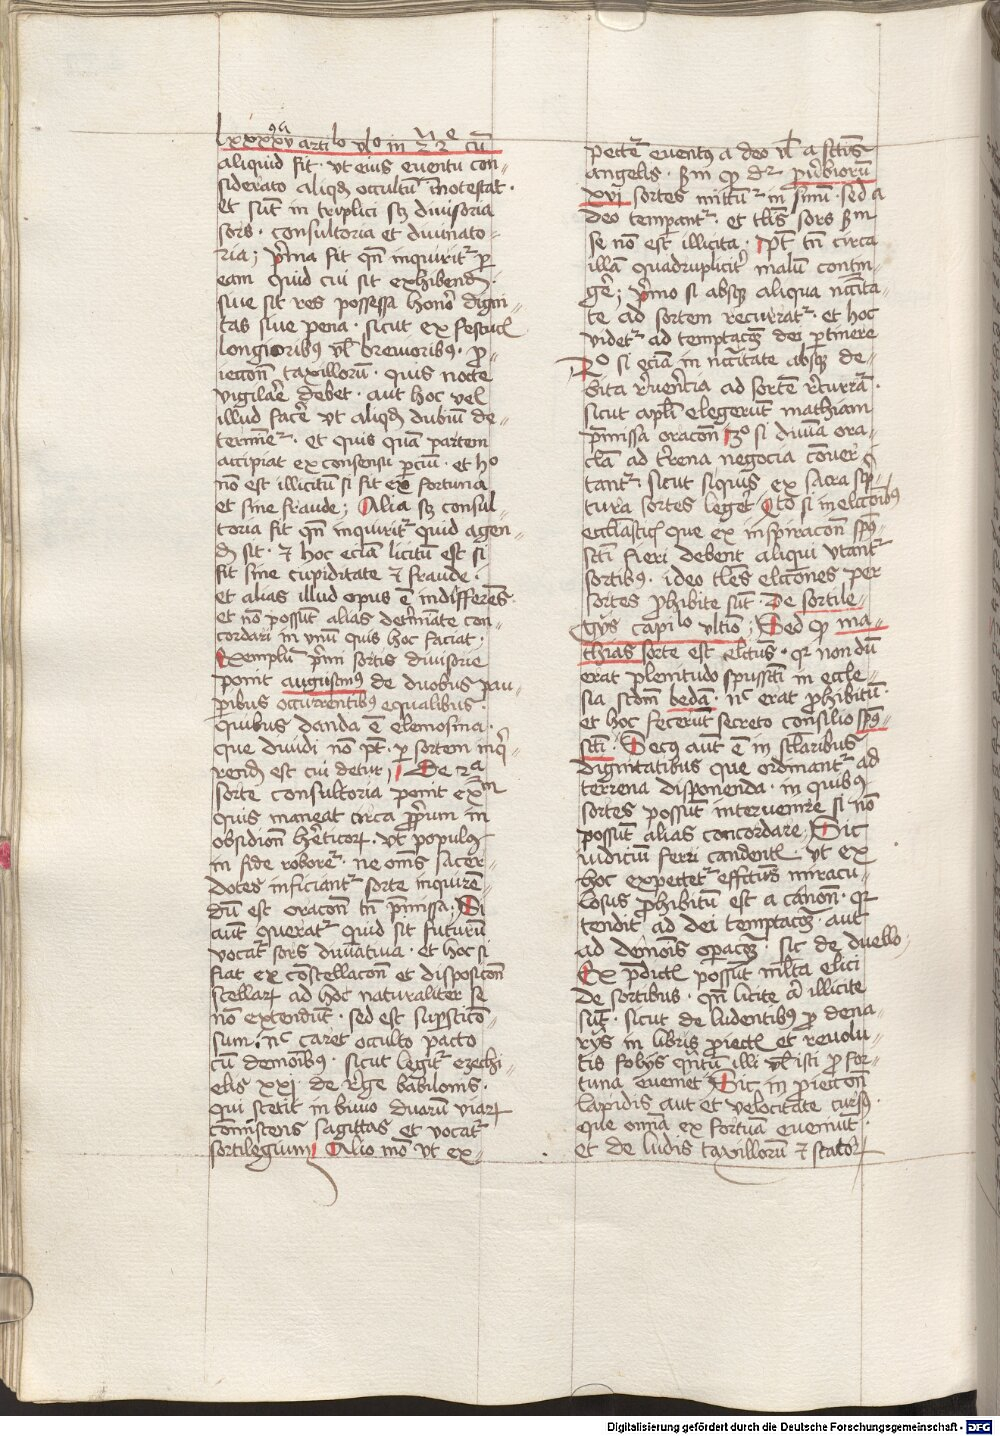 lxxxxv arti.lo vlo in 2a 2e cū
aliquid fit · vt eius euentu con-
siderato aliqd occultū innotescat ·
et sūt in triplici scz diuisoria
sors · consultoria et diuinato-
ria ; prima fit qn̄ inquiritr p
eam quid cui sit exhibend ·
siue sit res possessa honor digni
tas siue pena · sicut ex festuc
longioribus vl breuioribus · p-
iectione taxillorū · quis nocte
vigilare debet · aut hoc vel
illud facē vt aliqd dubiū de-
termiet · et quis quā partem
accipiat ex consensu parciū · et ho
nō est illicitū si fit ex fortuna
et sine fraude ; Alia scz consul-
toria fit qn̄ inquiritr quid agen-
d sit · et hoc eciā licitū est si
fit sine cupiditate et fraude ·
et alias illud opus ē indifferēs
et nō possunt alias determiate con-
cordari in vnū quis hoc faciat ·
Exemplū primi sortis diuisorie
ponit augustinus de duobus pau-
peribus occurrentibus equalibus ·
quibus danda ē elemosina ·
que diuidi nō pt · p sortem inqui-
rend est cui detur ; De 2a
sorte consultoria ponit exm
quis maneat circa populum in
obsidione hereticor · vt populus
in fide roboretr · ne omes sacer-
dotes inficiantr sorte inquirē-
dū est oracone tn̄ premissa ; Si
aut queratr quid sit futurū
vocatr sors diuinatiua · et hoc si
fiat ex costellacone et disposicone
stellar ad hoc naturaliter se
nō extendunt · sed est supersticio-
sum · nec caret occulto pacto
cū demonibus · sicut legitr ezechi-
elis xxj · de rege babilonis ·
qui stetit in biuio duorū viar
commiscens sagittas et vocatr
sortilegium Alio mo vt ex-
pectetr euentus a deo vl a sctis
angelis · scdm qd dr puerbiorū
xvj sortes mittūtr in sinū · sed a
deo temperantr · et talis sors scdm
se nō est illicita · pt tn̄ circa
illā quadrupliciter malū contin-
gere ; primo si absq aliqua necessita-
te ad sortem recurratr · et hoc
videtr ad temptacom dei pertinere
2o si eciā in necessitate absq de-
bita reuerencia ad sortē recurrat ·
sicut apli elegerunt mathiam
premissa oracone 3o si diuina ora-
cla ad terrena negocia conuer-
tantr · sicut siquis ex sacra scrip-
tura sortes legeret 4to si in eleccionibus
ecclasticis que ex inspiracone spus
sancti fieri debent aliqui vtantr
sortibus · ideo tales elcciones per
sortes phibite sūt · De sortile-
gijs capi.lo vltio ; Sed qd ma-
thias sorte est electus · qr nondū
erat plenitudo spussancti in eccle-
sia scdm bedam · nec erat phibitū ·
et hoc fecerunt secreto consilio spus
sancti · Secus aut ē in secularibus
dignitatibus que ordinantr ad
terrena disponenda · in quibus
sortes possunt interuenire si nō
possunt alias concordare ; Sic
iudiciū ferri candentis · vt ex
hoc expectetr effectus miracu-
losus phibitū est a canone · qr
tendit ad dei temptacom · aut
ad demonis operacom · sic de duello
Ex predictis possunt multa elici
de sortibus · qn̄ licite aut illicite
sunt · sicut de ludentibus p dena-
rijs in libris piectis et reuolu-
tis folijs quitum illi vl isti p for-
tuna euenit Sic in proiectione
lapidis aut et velocitate cursus ·
que omnia ex fortuna eueniunt ·
et de ludis taxillorū et scacor
Digitalisierung gefördert durch die Deutsche Forschungsgemeinschaft - DFG